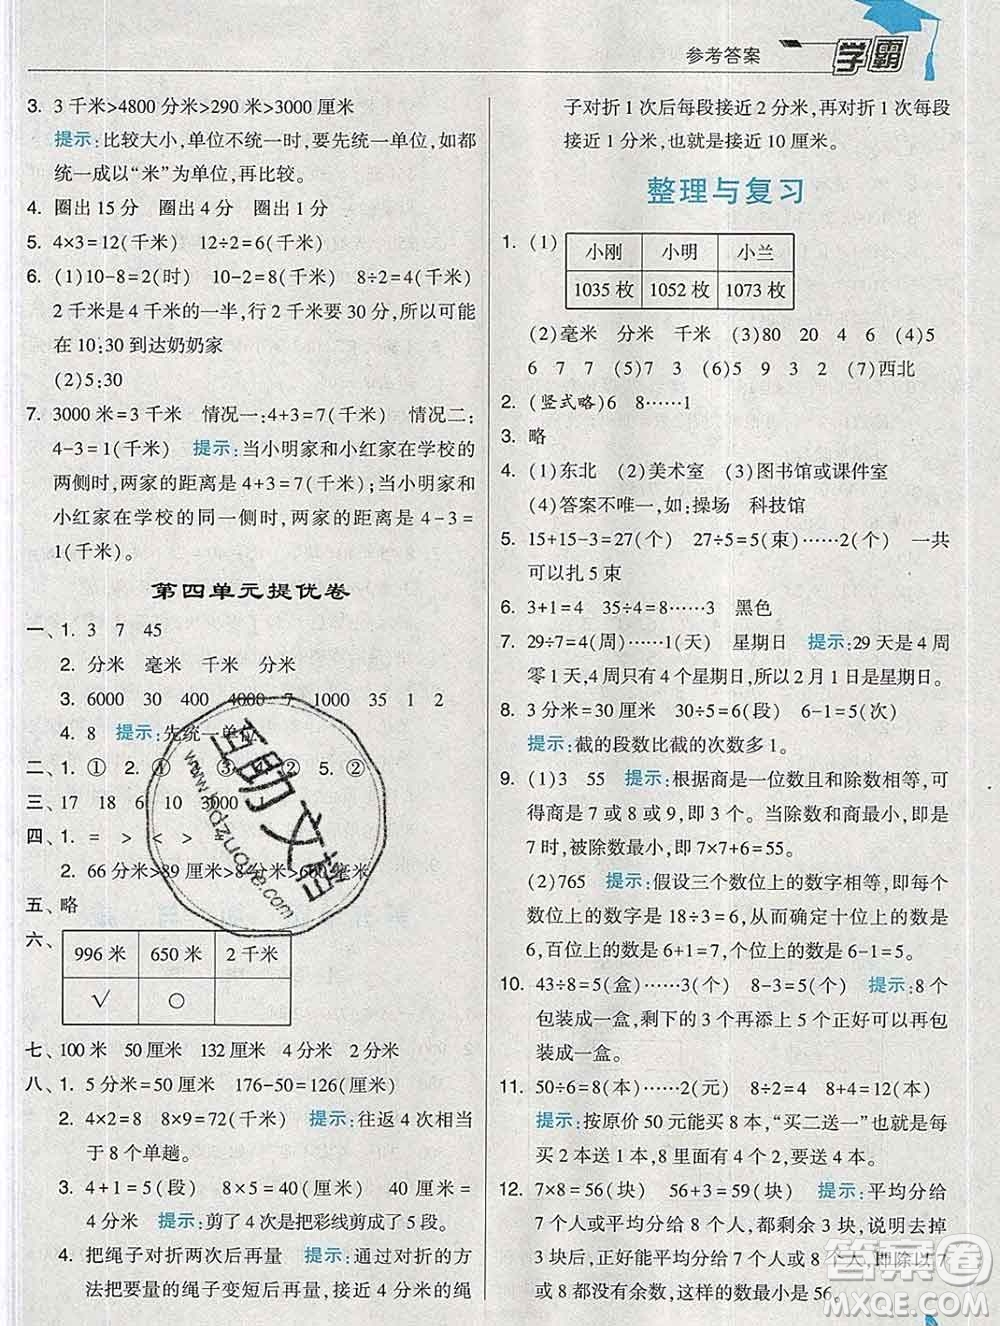 参考答案
学霸
3. 3千米>4800分米>290米>3000厘米
提示:比较大小,单位不统一时,要先统一单位,如都
统一成以“米”为单位,再比较。
4. 圈出15分 圈出4分 圈出1分
5. 4×3=12(千米) 12÷2=6(千米)
6. (1)10-8=2(时) 10-2=8(千米) 8÷2=4(千米)
2千米是4千米的一半,行2千米要30分,所以可能
在10:30到达奶奶家
(2)5:30
7. 3000米=3千米 情况一:4+3=7(千米) 情况二:
4-3=1(千米) 提示:当小明家和小红家在学校的
两侧时,两家的距离是4+3=7(千米);当小明家和
小红家在学校的同一侧时,两家的距离是4-3=
1(千米)。
第四单元提优卷
一、1. 3 7 45
2. 分米 毫米 千米 分米
3. 6000 30 400 4000 7 1000 35 1 2
4. 8 提示:先统一单位。
二、1. ① 2. ④ ③ 4. ② 5. ②
三、17 18 6 10 3000
四、1. = > < >
2. 66分米>89厘米>8分米>600毫米
五、略
六、
996米 650米 2千米
√ ○
七、100米 50厘米 132厘米 4分米 2分米
八、1. 5分米=50厘米 176-50=126(厘米)
2. 4×2=8 8×9=72(千米) 提示:往返4次相当
于8个单趟。
3. 4+1=5(段) 8×5=40(厘米) 40厘米=
4分米 提示:剪了4次是把彩线剪成了5段。
4. 把绳子对折两次后再量 提示:通过对折的方
法把要量的绳子变短后再量,接近4分米的绳
子对折1次后每段接近2分米,再对折1次每段
接近1分米,也就是接近10厘米。
整理与复习
1. (1)
小刚 小明 小兰
1035枚 1052枚 1073枚
(2)毫米 分米 千米 (3)80 20 4 (4)5
6 7 7 (5)7 (6)5 9 3 2 (7)西北
2. (竖式略)6 8……1
3. 略
4. (1)东北 (2)美术室 (3)图书馆或课件室
(4)答案不唯一,如:操场 科技馆
5. 15+15-3=27(个) 27÷5=5(束)……2(个) 一共
可以扎5束
6. 3+1=4 35÷4=8……3 黑色
7. 29÷7=4(周)……1(天) 星期日 提示:29天是4周
零1天,4周只有4个星期日,所以2月1日是星期日。
8. 3分米=30厘米 30÷5=6(段) 6-1=5(次)
提示:截的段数比截的次数多1。
9. (1)3 55 提示:根据商是一位数且和除数相等,可
得商是7或8或9,即3个数。当除数和商最小,余
数是6时,被除数最小,即7×7+6=55。
(2)765 提示:假设三个数位上的数字相等,即每个
数位上的数是18÷3=6,从而确定十位上的数是
6,百位上的数是6+1=7,个位上的数是6-1=5。
10. 43÷8=5(盒)……3(个) 8-3=5(个) 提示:8个
包装成一盒,剩下的3个再添上5个正好可以再包
装成一盒。
11. 50÷6=8(本)……2(元) 8÷2=4 8+4=12(本)
提示:按原价50元能买8本,“买二送一”也就是每
买2本送1本,8里面有4个2,所以又送了4本。
12. 7×8=56(块) 56+3=59(块) 提示:平均分给
7个人或平均分给8个人,都是多3块,所以去掉
3块后,正好能平均分给7个人或8个人,即除以7
或8都没有余数,这样的数最小是56。
互助文档
www.hdzuoye.com
答案圈
MXQE.COM